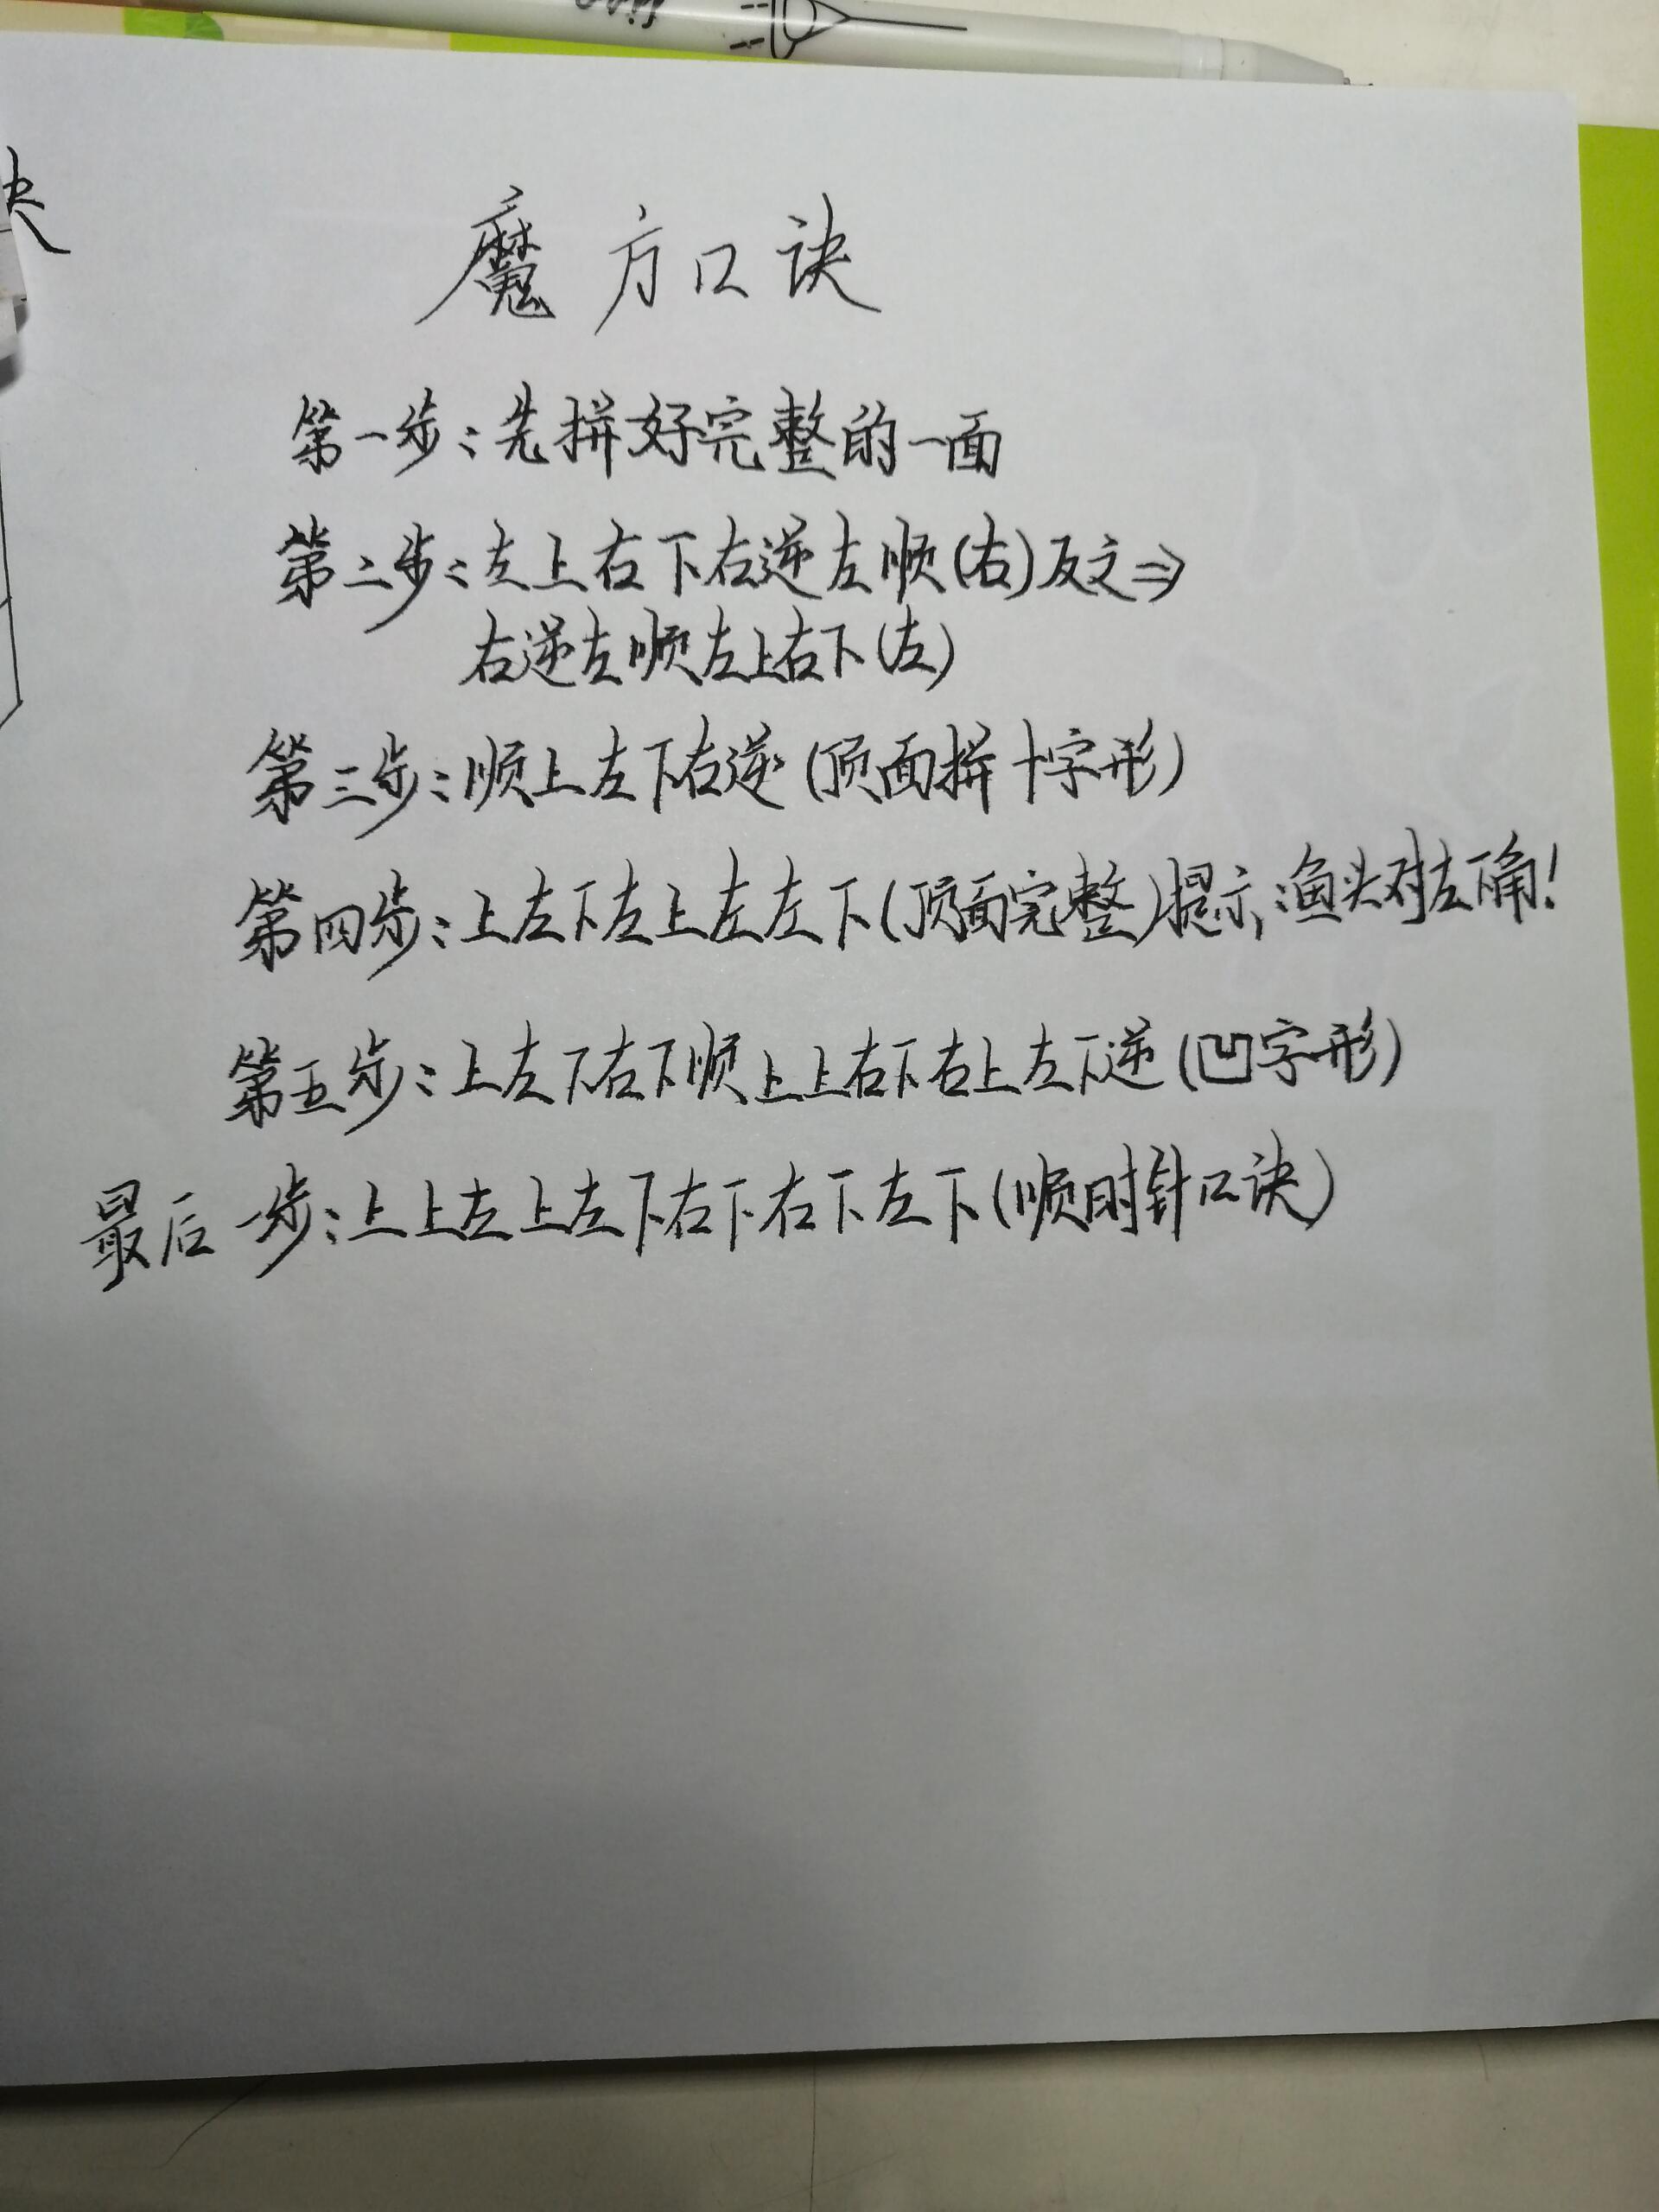 魔方口诀
第一步:先拼好完整的一面
第二步:左上右下右逆左顺(右)反文⇒
右逆左顺左上右下(左)
第三步:顺上左下右逆(顶面拼十字形)
第四步:上左下左上左左下(顶面完整)提示,渔头对左下角!
第五步:上左下右下顺上上右下右上左下逆(凹字形)
最后一步:上上左上左下右下右下左下(顺时针口诀)